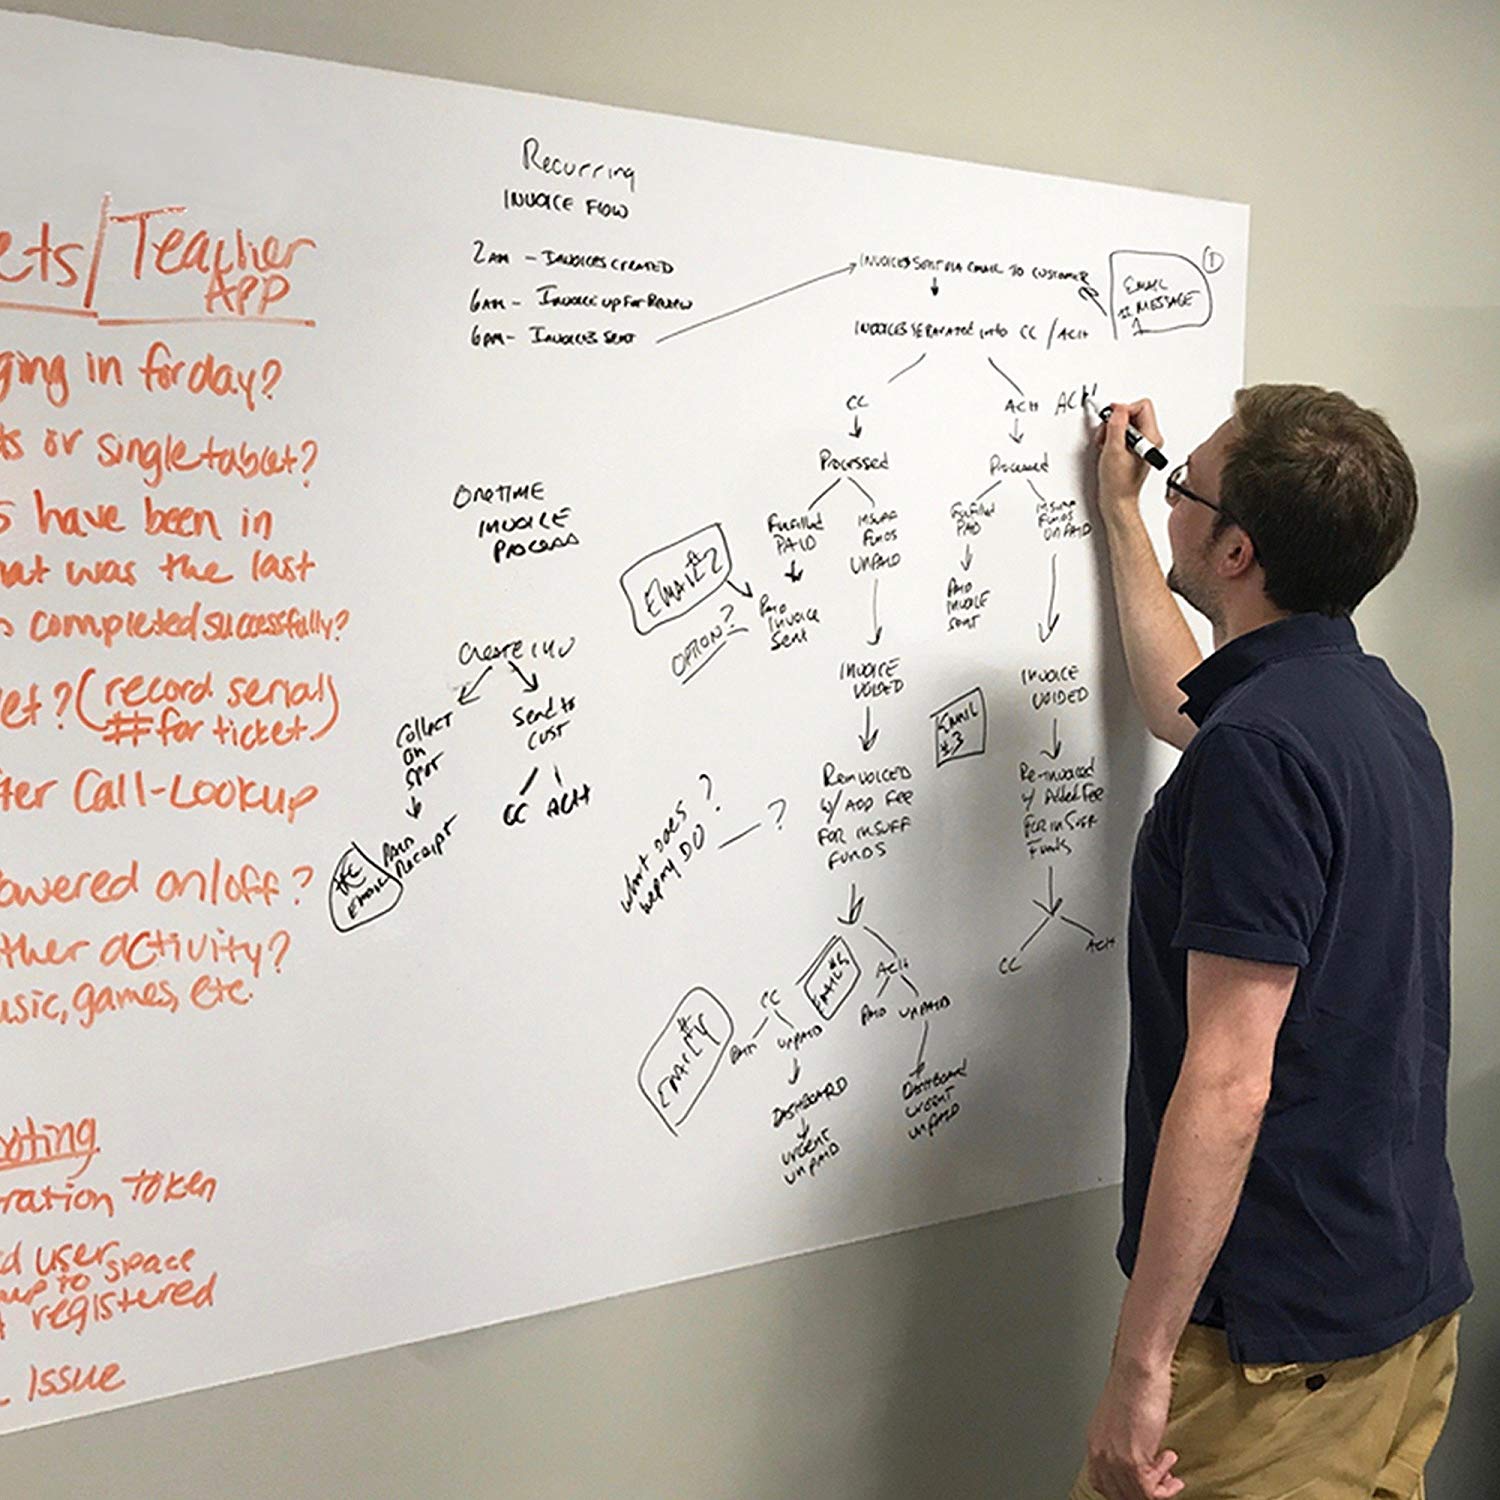 ets/Teacher
APP
ging in for day?
ts or single tablet?
s have been in
hat was the last
completed successfully?
et? (record serial)
# for ticket.)
ter Call-Lookup
owered on/off?
ther activity?
usic, games, etc.
oting
ration Token
d user space
up to
registered
Issue
Recurring
INVOICE FLOW
2AM - INVOICES CREATED
6AM - Invoice up for Review
6PM - INVOICES SENT
INVOICES SENT VIA EMAIL TO CUSTOMER
EMAIL
MESSAGE
1
INVOICES SEPARATED into CC / ACH
CC
Processed
Fulfilled
PAID
INSUFF
FUNDS
UNPAID
PAID
INVOICE
Sent
EMAIL #2
OPTION?
INVOICE
VOIDED
Reinvoiced
w/ ADD FEE
FOR INSUFF
FUNDS
CC
UNPAID
DASHBOARD
URGENT
UNPAID
ACH
PAID UNPAID
DASHBOARD
URGENT
UNPAID
EMAIL #4
EMAIL #5
ACH
ACH
Processed
Fulfilled
PAID
INSUFF
FUNDS
UNPAID
PAID
INVOICE
SENT
INVOICE
VOIDED
EMAIL
#3
Re-invoiced
w/ Added Fee
For insuff
Funds
CC
ACH
ONE TIME
INVOICE
PROCESS
CREATE INV
COLLECT
ON
SPOT
PAID
Receipt
EMAIL
Send to
CUST
CC ACH
What does ?
WePay DO
?